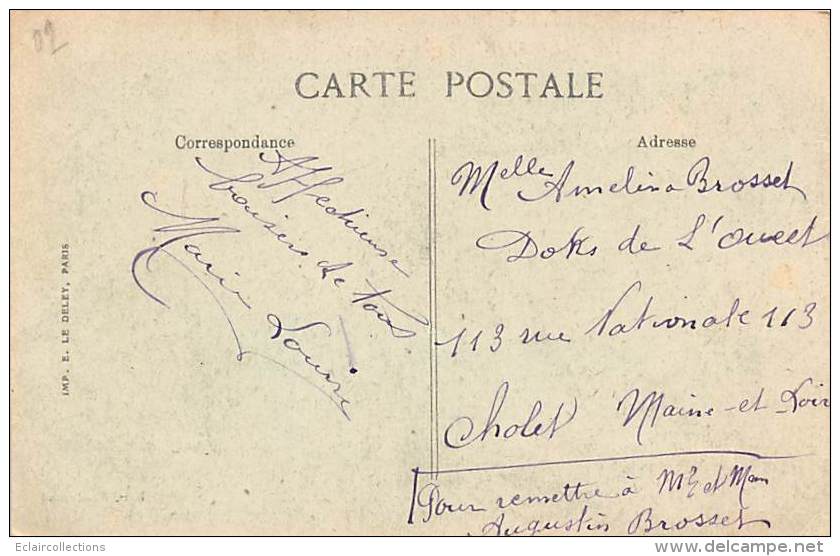 02
CARTE POSTALE
Correspondance
Affectueuse
baisers de tous
Marie Louise
Adresse
Melle Amelina Brosset
Doks de L'Ouest
113 rue Nationale 113
Cholet Maine-et-Loir
Pour remettre à Mr et Mm
Augustin Brosset
IMP. E. LE DELEY, PARIS
Eclaircollections
delcampe.net